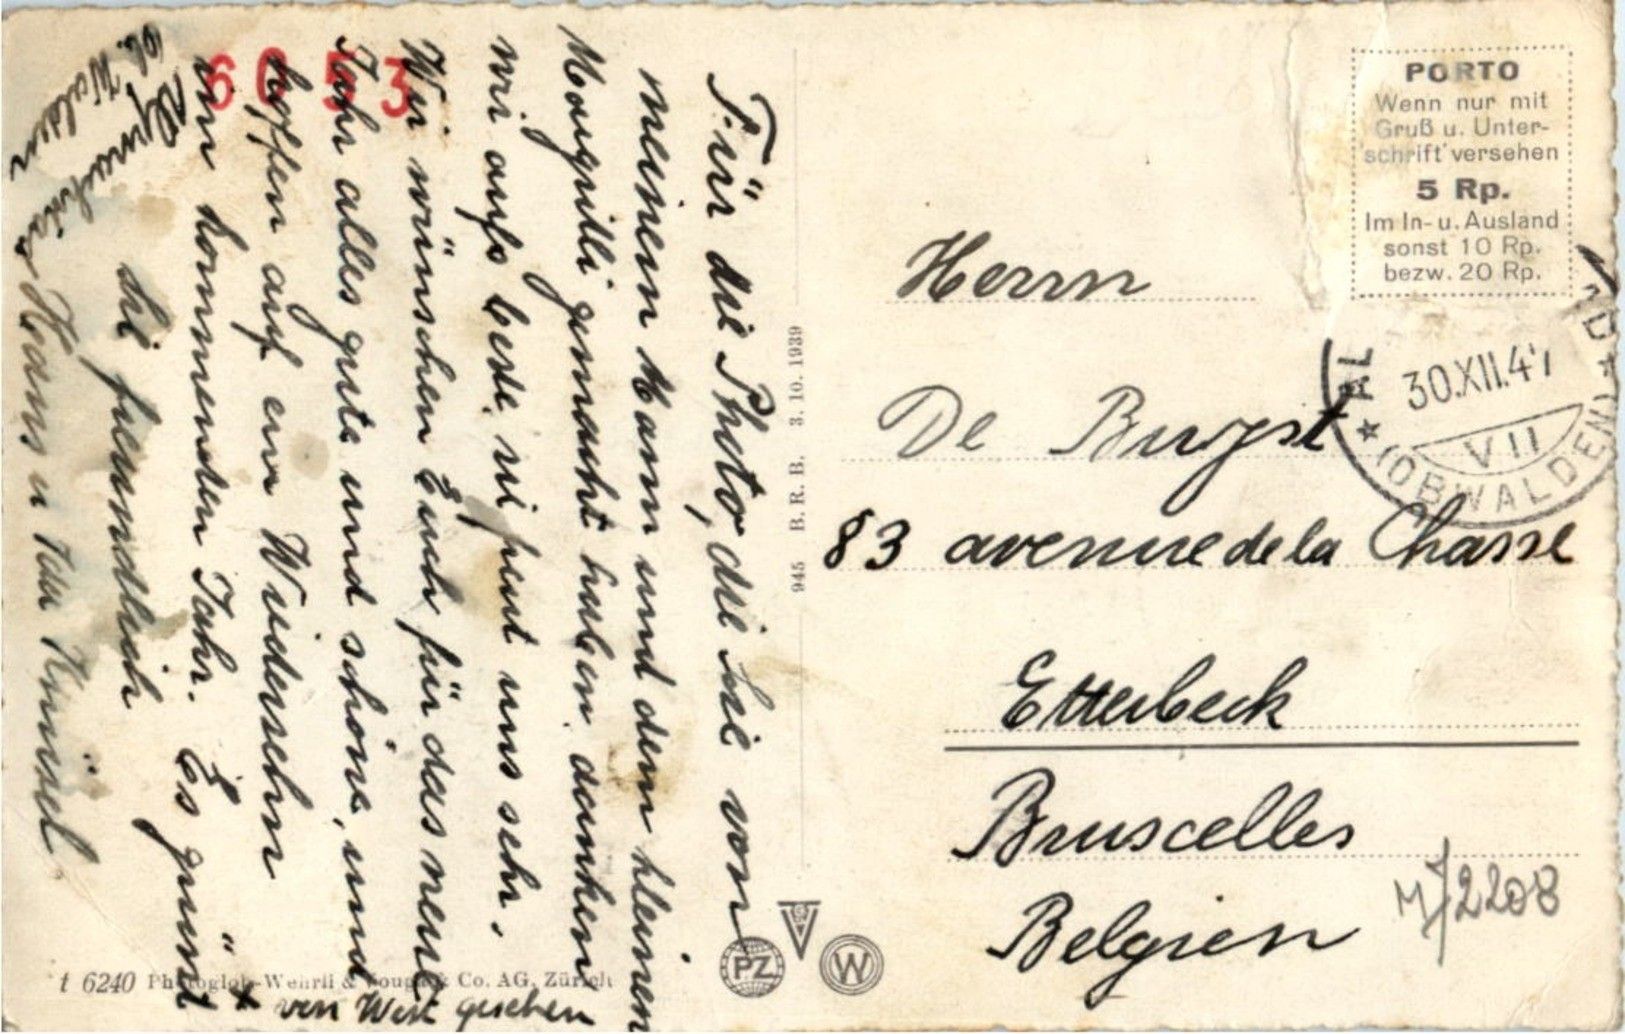 Für die Photo, die Sie von
meinem Mann und dem kleinen
gemacht haben danken
wir aufs beste, sie freut uns sehr.
Wir wünschen Euch für das neue
Jahr alles gute und schöne, und
hoffen auf ein Wiedersehn
im kommenden Jahr. Es grüsst
die freundlich
Hans u Ida
6053
PORTO
Wenn nur mit
Gruß u. Unter-
schrift versehen
5 Rp.
Im In- u. Ausland
sonst 10 Rp.
bezw. 20 Rp.
30.XII.47
VII
(OBWALDEN)
Herrn
De Buyst
83 avenue de la Chasse
Etterbeck
Bruscelles
Belgien
945 B. R. B. 3. 10. 1939
PZ
W
t 6240 Photoglob-Wehrli & Vouga & Co. AG, Zürich
von West gesehen